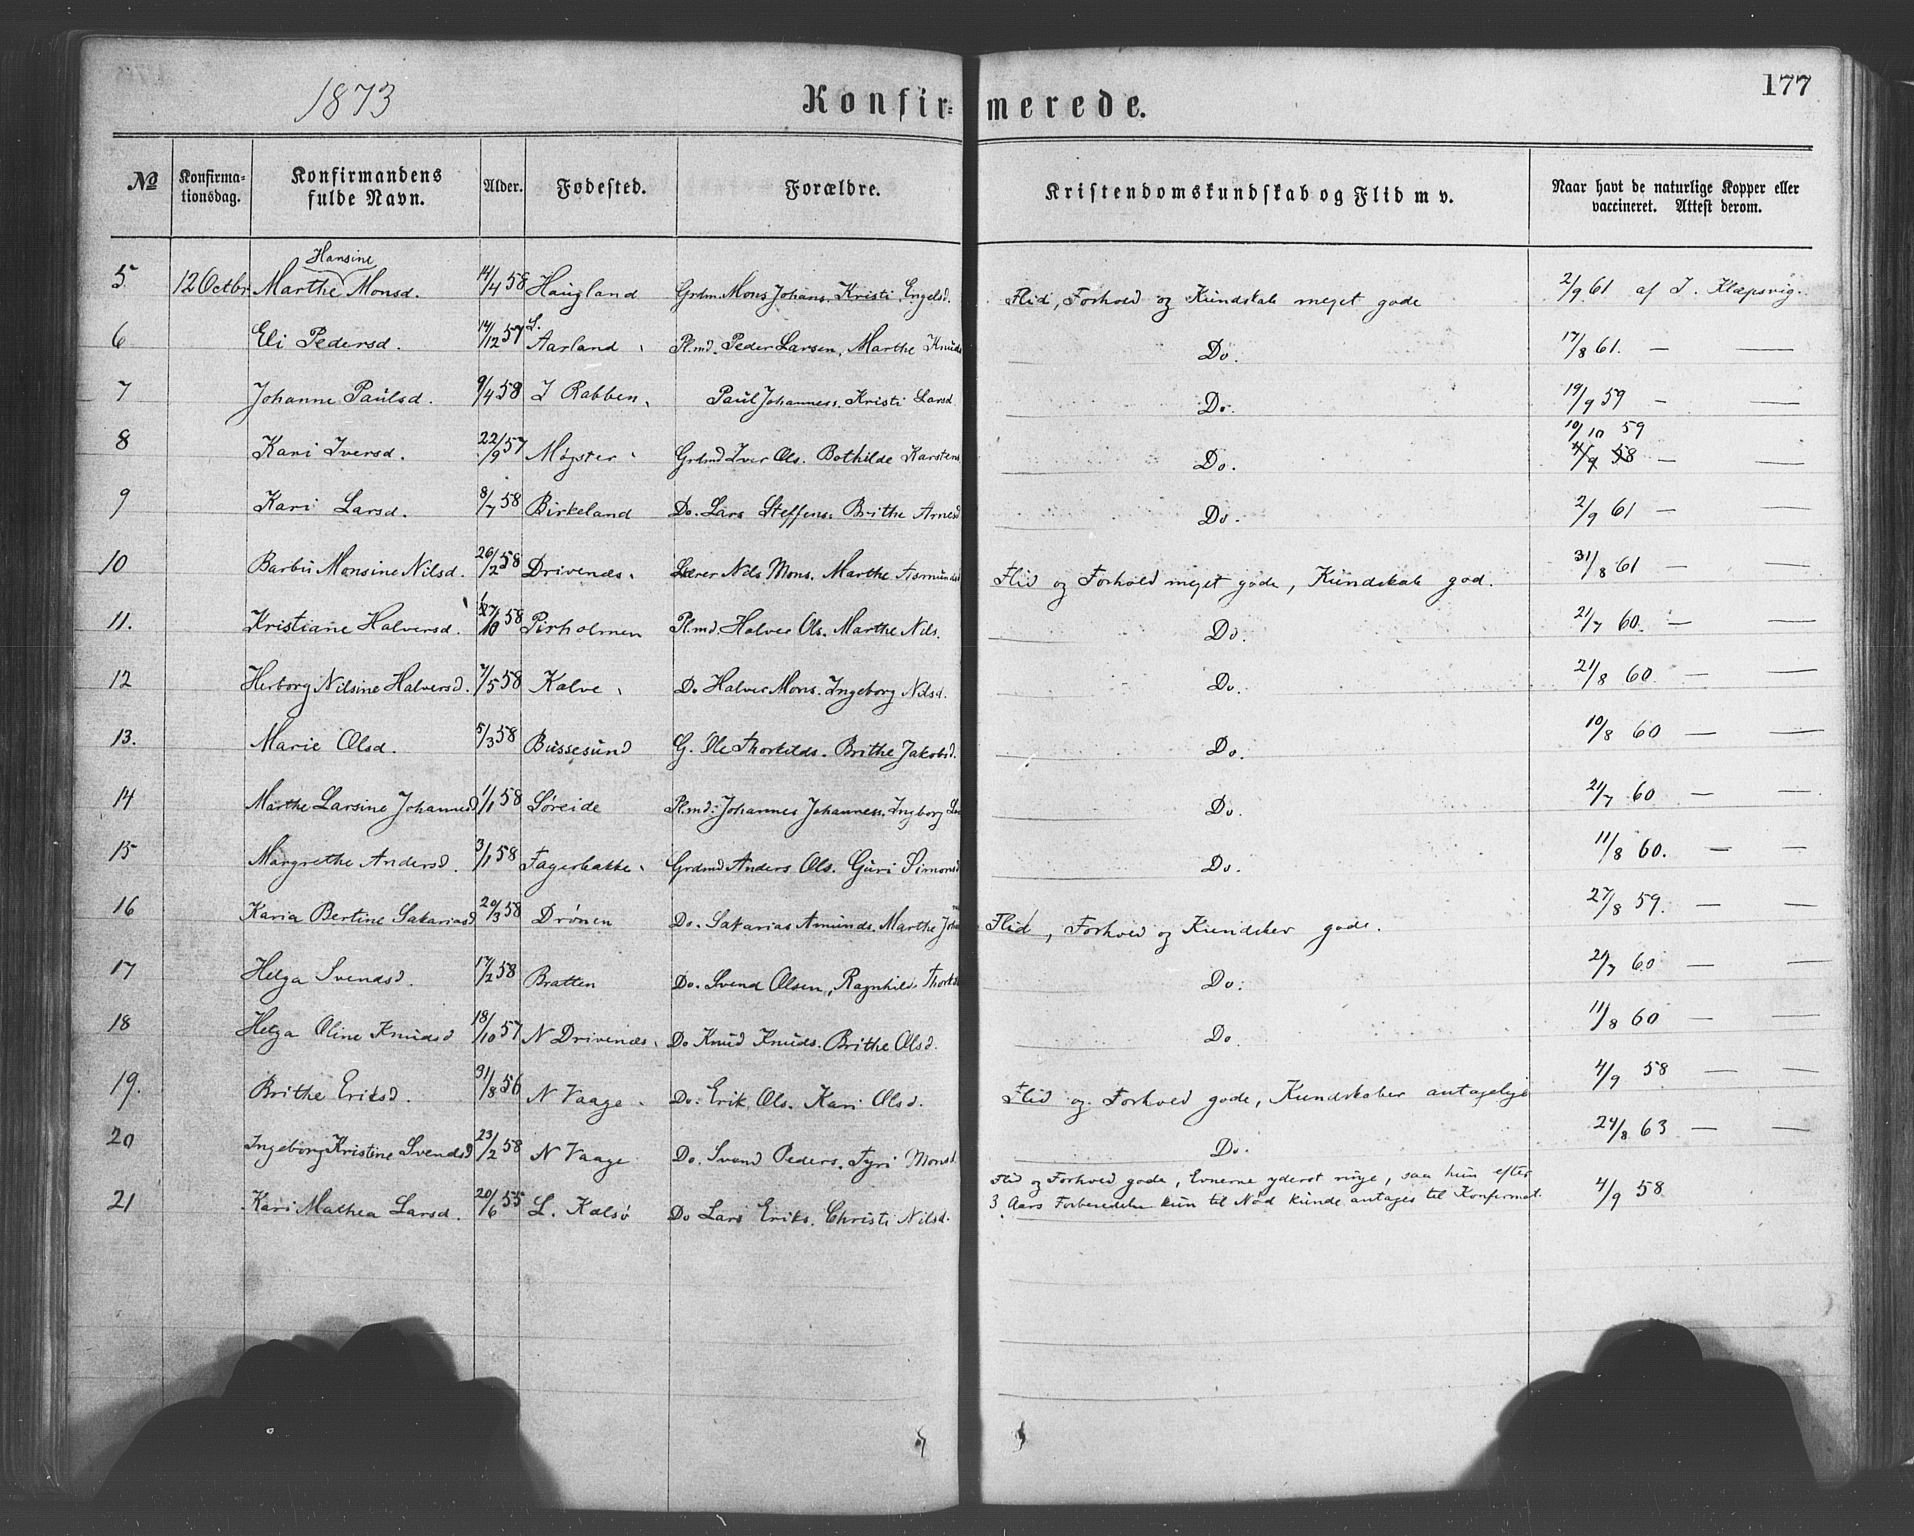 1873 Konfir= merede. 177
№ Konfirma- tionsdag. Konfirmandens fulde Navn. Alder. Fødested. Forældre. Kristendomskundskab og Flid m v. Naar havt de naturlige Kopper eller vaccineret. Attest derom.
Hansine
5 12 Octbr Marthe Monsd. 14/4 58 Haugland Grdm. Mons Johans. Kristi Engelsd. Flid, Forhold og Kundskab meget gode 2/9 61 af J. Klepsvig.
6 Eli Pedersd. 14/12 57 L. Aarland Pl.md. Peder Larsen, Marthe Do. 17/8 61. — —
7 Johanne Paulsd. 9/4 58 I Rabben Paul Johanness. Kristi Larsd Do. 19/9 59 — —
10/10 59
8 Kari Iversd. 22/9 57 Møgster Grdmd Iver Ols. Bothilde Karstens Do. 4/9 58 — —
9 Kari Larsd. 8/7 58 Birkeland Do. Lars Steffens. Brithe Arnesd Do. 2/9 61 — —
10 Barbu Monsine Nilsd. 26/2 58 Drivenæs Lærer Nils Mons. Marthe Asmundsd Flid og Forhold meget gode, Kundskab god. 31/8 61 — —
11. Kristiane Halversd. /10 58 Pirholmen Pl.md. Halver Ols. Marthe Nils. Do. 21/7 60. — —
12 Herborg Nilsine Halversd. 7/5 58 Kalve Do Halver Mons. Ingeborg Nilsd. Do. 21/8 60. — —
13. Marie Olsd. 5/3 58 Bussesund G. Ole Thorkilds. Brithe Jakobsd. Do. 10/8 60 — —
14 Marthe Larsine Johannesd 1/1 58 Søreide Pl.md. Johannes Johanness. Ingborg Do. 21/7 60 — —
15 Margrethe Andersd. 3/1 58 Fagerbakke Grdmd Anders Ols. Guri Simonsd Do. 11/8 60. — —
16 Karia Bertine Sakariasd 20/3 58 Drönen Do. Sakarias Amunds. Marthe Flid, Forhold og Kundskab gode. 27/8 59. — —
17 Helga Svendsd. 17/2 58 Bratten Do. Svend Olsen, Ragnhild Do. 21/7 60 — —
18 Helga Oline Knudsd 18/10 57 N Drivenæs Do Knud Knuds. Brithe Olsd. Do. 11/8 60 — —
19. Brithe Eriksd. 31/8 56 N Vaage Do. Erik Ols. Kari Olsd. Flid og Forhold gode, Kundskaber antagelige 4/9 58 — —
20 Ingeborg Kristine Svendsd 23/2 58 N Vaage Do. Svend Peders. Tyri Monsd Do. 24/8 63 — —
Flid og Forhold gode, Evnerne yderst ringe, saa hun efter
21 Kari Mathea Larsd. 20/6 55 L. Kalsö Do Lars Eriks. Christi Nilsd. 3 Aars Forberedelse kun til Nød kunde antages til Konfirmat. 4/9 58